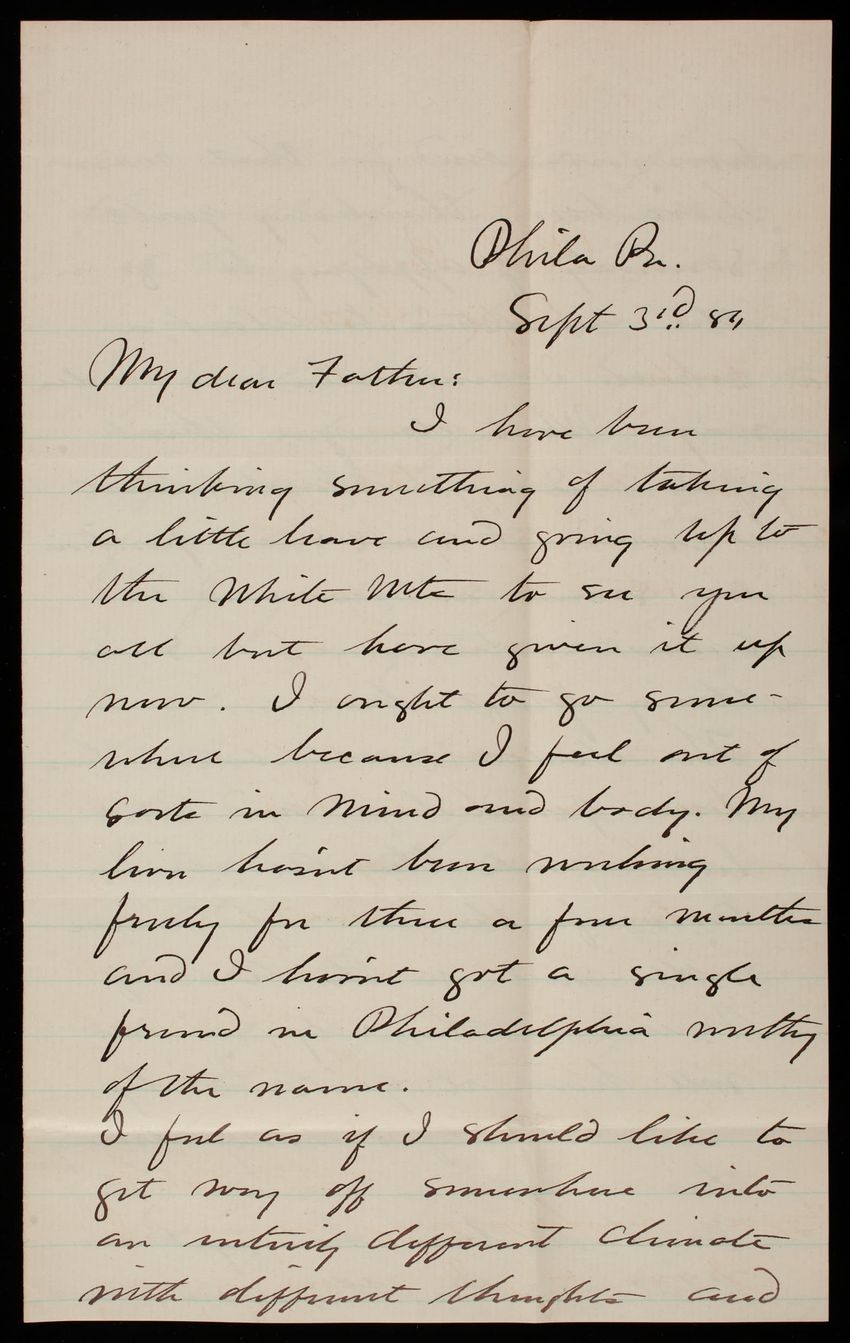 Phila Pa.
Sept 3rd 84
My dear Father:
I have been
thinking something of taking
a little leave and going up to
the White Mts to see you
all but have given it up
now. I ought to go some-
where because I feel out of
sorts in mind and body. My
liver hasn't been working
freely for three or four months
and I havn't got a single
friend in Philadelphia worthy
of the name.
I feel as if I should like to
get way off somewhere into
an entirely different climate
with different thoughts and